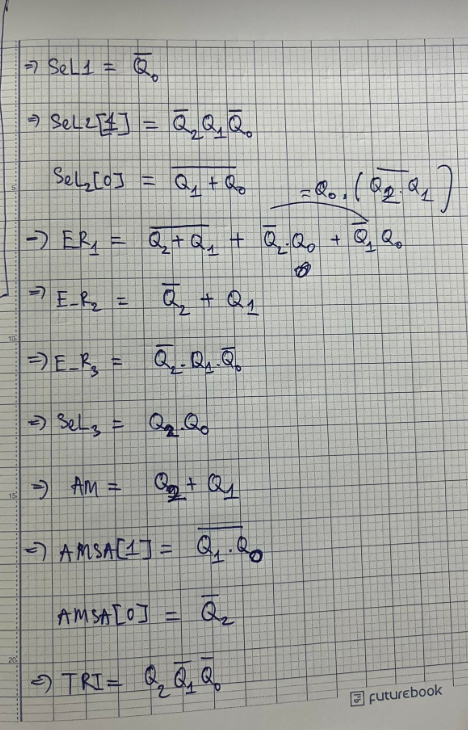 ⇒ SeL1 = Q̅₀
⇒ SeL2[1] = Q̅₂Q₁Q̅₀
SeL₂[0] = \overline{Q₁ + Q₀}
= Q₀.(\overline{Q₂.Q₁})
⇒ ER₁ = \overline{Q₂ + Q₁} + Q̅₂.Q₀ + Q̅₁Q₀
⇒ E_R₂ = Q̅₂ + Q₁
⇒ E_R₃ = Q̅₂.Q₁.Q̅₀
⇒ SeL₃ = Q₂.Q₀
⇒ AM = Q₂ + Q₁
⇒ AMSA[1] = \overline{Q₁.Q₀}
AMSA[0] = Q̅₂
⇒ TRI = Q₂Q̅₁Q̅₀
futurebook